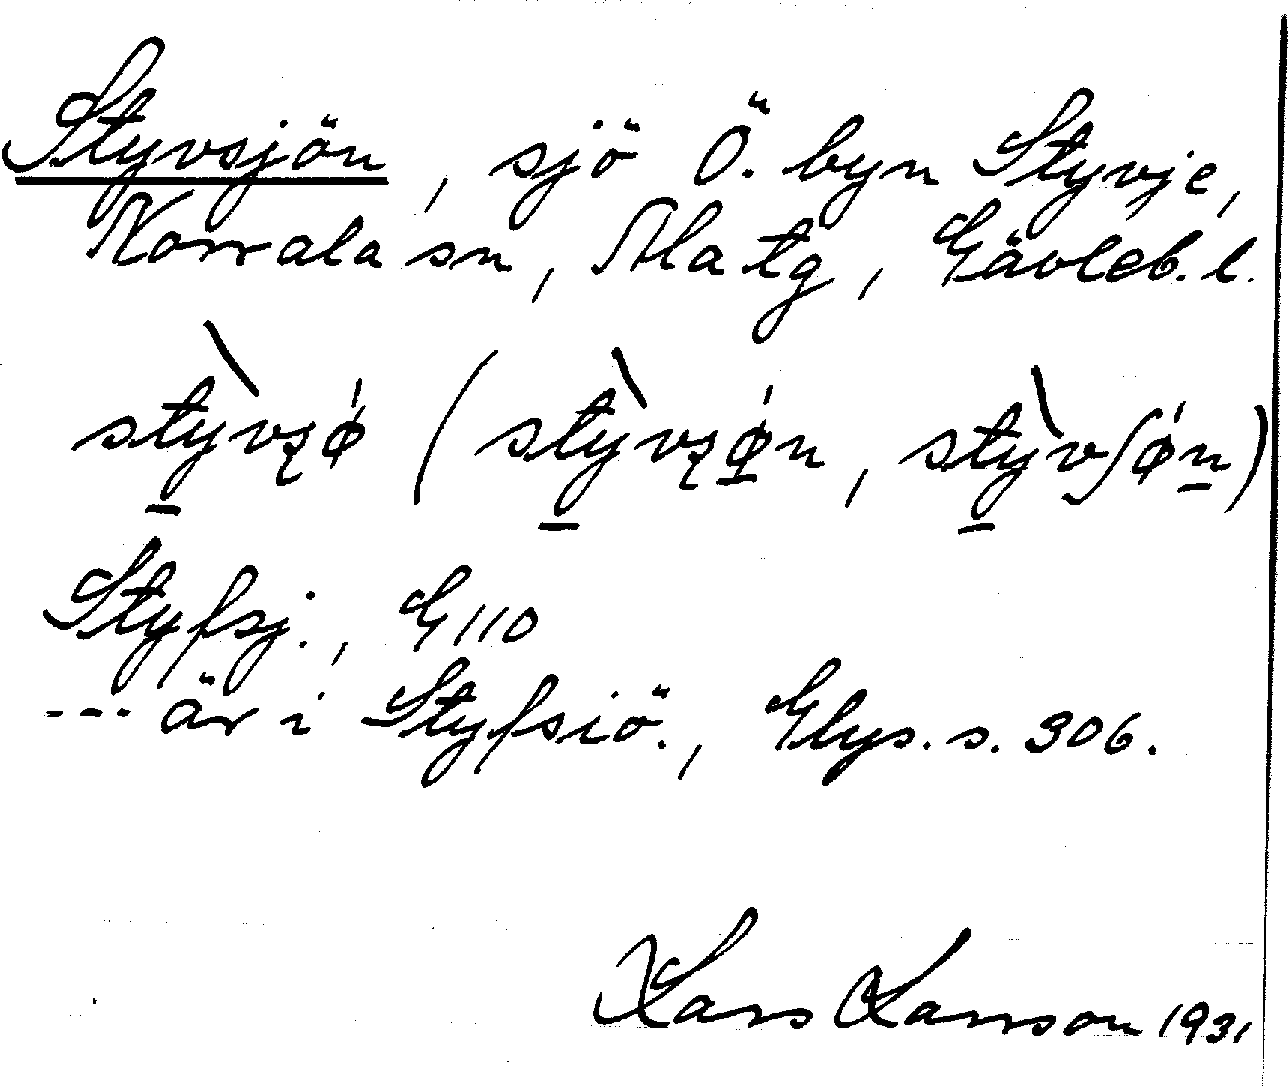 Styvsjön, sjö Ö. byn Styvje,
Norrala sn, Ala tg, Gävleb. l.
stỳ̠vʂǿ (stỳ̠vʂǿ̠n, stỳ̠vʃǿn̠)
Styfsj., G110
--- är i Styfsiö., Glys. s. 306.
Lars Larsson 1931